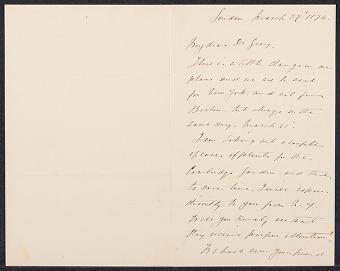 London March 27' 1874.
My dear Dr Gray,
There is a little change in our
plans and we are to sail
for New York and not from
Boston, but always on the
same day. March 31.
I am taking out a couple
of cases of plants for the
Cambridge Garden and think,
to save time, I will express
directly to you from N.Y.
Will you kindly see that
they receive proper attention?
We have seen your friend